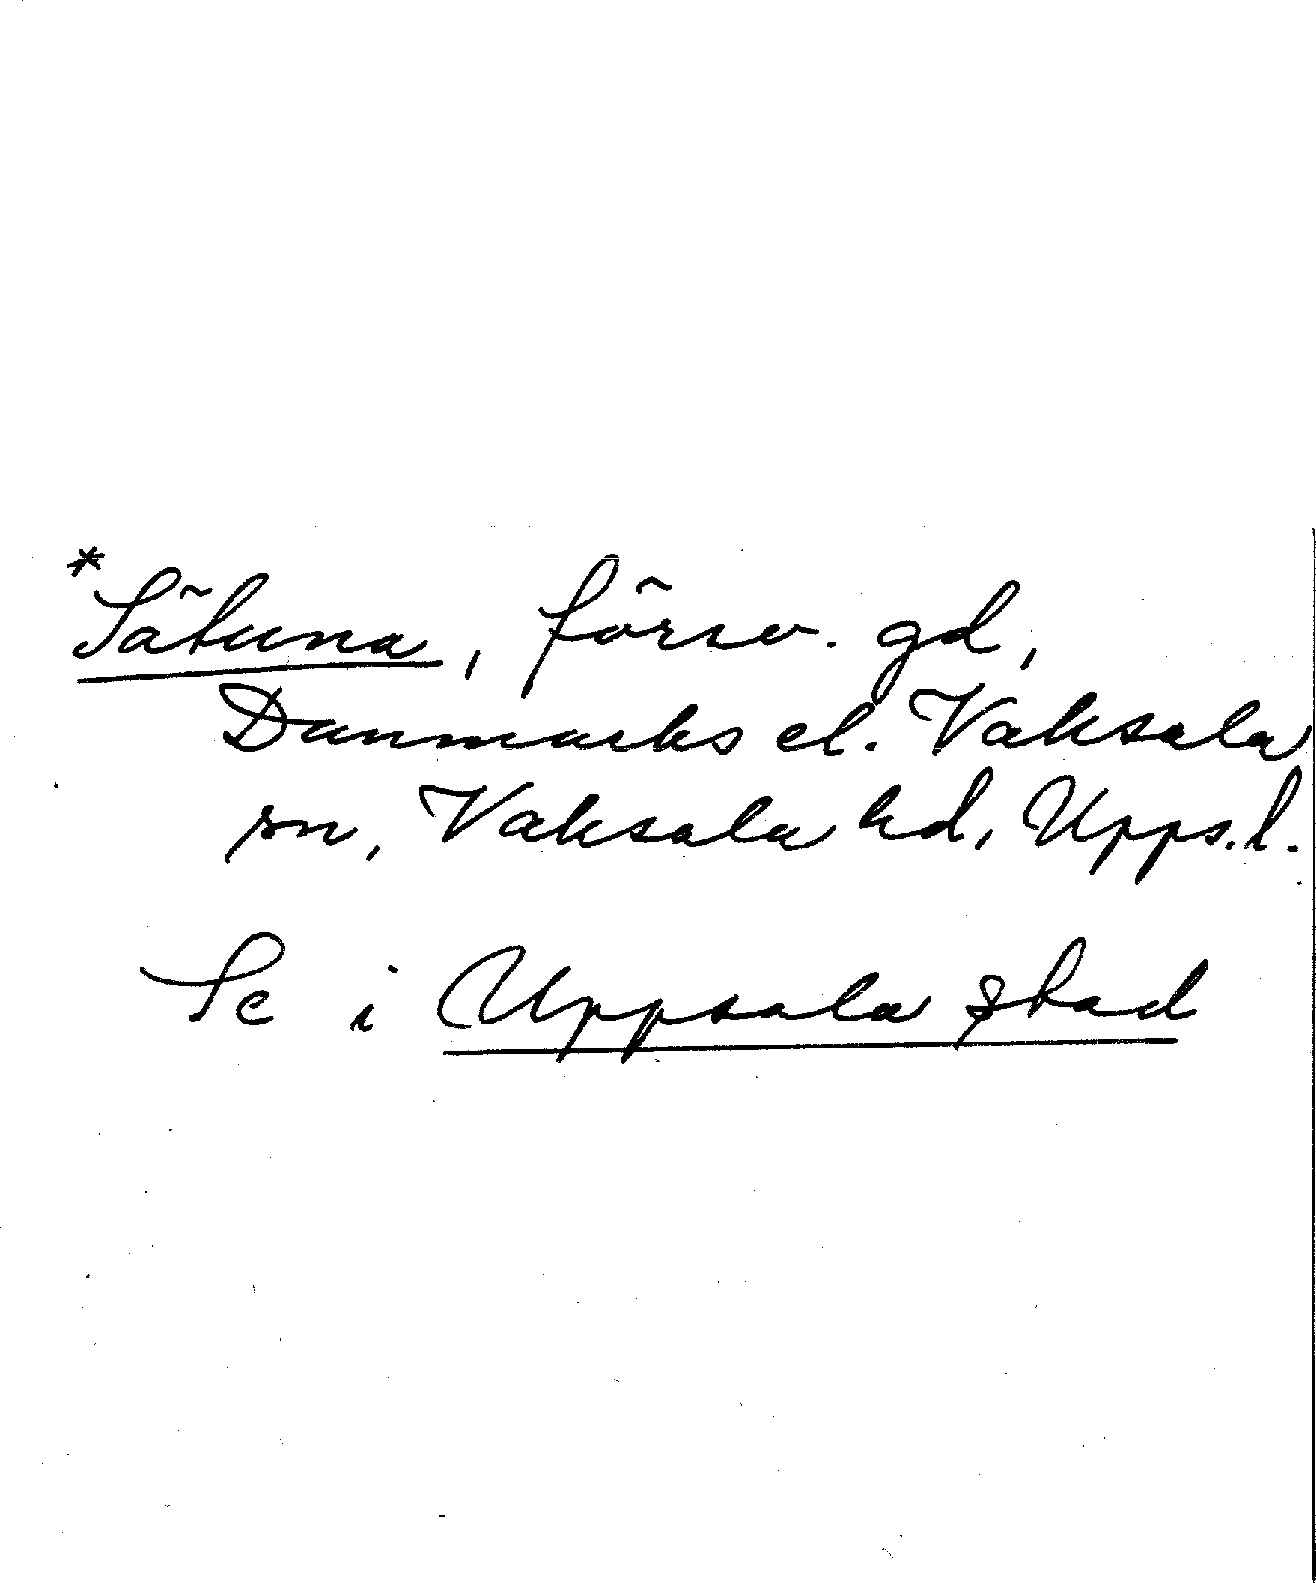 *Sätuna, försv. gd,
Danmarks el. Vaksala
sn, Vaksala hd, Upps. l.
Se i Uppsala stad